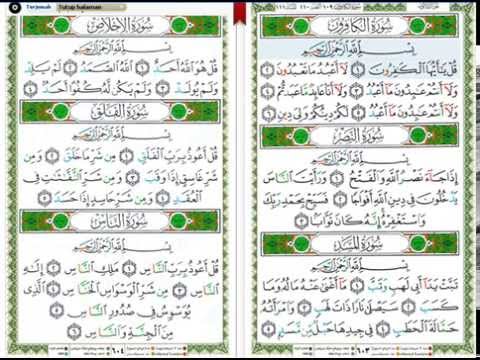 Terjemah Tutup halaman
سُورَةُ الكَافِرُونَ
بِسْمِ اللَّهِ الرَّحْمَٰنِ الرَّحِيمِ
قُلْ يَٰٓأَيُّهَا ٱلْكَٰفِرُونَ ١ لَآ أَعْبُدُ مَا تَعْبُدُونَ ٢
وَلَآ أَنتُمْ عَٰبِدُونَ مَآ أَعْبُدُ ٣ وَلَآ أَنَا۠ عَابِدٌ مَّا عَبَدتُّمْ ٤
وَلَآ أَنتُمْ عَٰبِدُونَ مَآ أَعْبُدُ ٥ لَكُمْ دِينُكُمْ وَلِىَ دِينِ ٦
سُورَةُ النَّصْرِ
بِسْمِ اللَّهِ الرَّحْمَٰنِ الرَّحِيمِ
إِذَا جَآءَ نَصْرُ ٱللَّهِ وَٱلْفَتْحُ ١ وَرَأَيْتَ ٱلنَّاسَ
يَدْخُلُونَ فِى دِينِ ٱللَّهِ أَفْوَاجًا ٢ فَسَبِّحْ بِحَمْدِ رَبِّكَ
وَٱسْتَغْفِرْهُ إِنَّهُۥ كَانَ تَوَّابًۢا ٣
سُورَةُ المَسَدِ
بِسْمِ اللَّهِ الرَّحْمَٰنِ الرَّحِيمِ
تَبَّتْ يَدَآ أَبِى لَهَبٍ وَتَبَّ ١ مَآ أَغْنَىٰ عَنْهُ مَالُهُۥ وَمَا
كَسَبَ ٢ سَيَصْلَىٰ نَارًا ذَاتَ لَهَبٍ ٣ وَٱمْرَأَتُهُۥ
حَمَّالَةَ ٱلْحَطَبِ ٤ فِى جِيدِهَا حَبْلٌ مِّن مَّسَدٍۭ ٥
٦٠٣
سُورَةُ الإِخْلَاصِ
بِسْمِ اللَّهِ الرَّحْمَٰنِ الرَّحِيمِ
قُلْ هُوَ ٱللَّهُ أَحَدٌ ١ ٱللَّهُ ٱلصَّمَدُ ٢ لَمْ يَلِدْ
وَلَمْ يُولَدْ ٣ وَلَمْ يَكُن لَّهُۥ كُفُوًا أَحَدٌۢ ٤
سُورَةُ الفَلَقِ
بِسْمِ اللَّهِ الرَّحْمَٰنِ الرَّحِيمِ
قُلْ أَعُوذُ بِرَبِّ ٱلْفَلَقِ ١ مِن شَرِّ مَا خَلَقَ ٢ وَمِن
شَرِّ غَاسِقٍ إِذَا وَقَبَ ٣ وَمِن شَرِّ ٱلنَّفَّٰثَٰتِ فِى
ٱلْعُقَدِ ٤ وَمِن شَرِّ حَاسِدٍ إِذَا حَسَدَ ٥
سُورَةُ النَّاسِ
بِسْمِ اللَّهِ الرَّحْمَٰنِ الرَّحِيمِ
قُلْ أَعُوذُ بِرَبِّ ٱلنَّاسِ ١ مَلِكِ ٱلنَّاسِ ٢ إِلَٰهِ
ٱلنَّاسِ ٣ مِن شَرِّ ٱلْوَسْوَاسِ ٱلْخَنَّاسِ ٤ ٱلَّذِى
يُوَسْوِسُ فِى صُدُورِ ٱلنَّاسِ ٥
مِنَ ٱلْجِنَّةِ وَٱلنَّاسِ ٦
٦٠٤